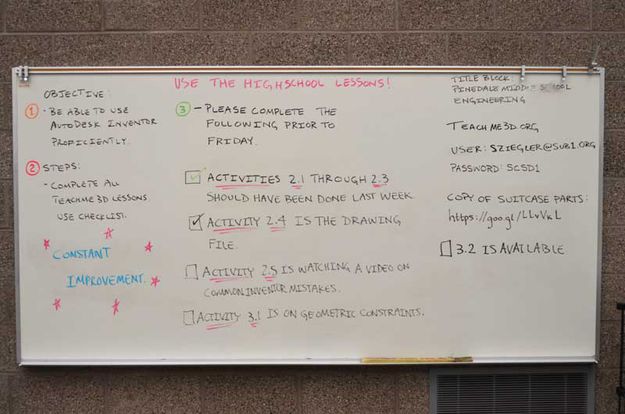 OBJECTIVE:
① - BE ABLE TO USE
AUTODESK INVENTOR
PROFICIENTLY.
② STEPS:
- COMPLETE ALL
TEACHME3D LESSONS
USE CHECKLIST.
CONSTANT
IMPROVEMENT.
USE THE HIGHSCHOOL LESSONS!
③ - PLEASE COMPLETE THE
FOLLOWING PRIOR TO
FRIDAY.
ACTIVITIES 2.1 THROUGH 2.3
SHOULD HAVE BEEN DONE LAST WEEK
ACTIVITY 2.4 IS THE DRAWING
FILE.
ACTIVITY 2.5 IS WATCHING A VIDEO ON
COMMON INVENTOR MISTAKES.
ACTIVITY 3.1 IS ON GEOMETRIC CONSTRAINTS.
TITLE BLOCK:
PINEDALE MIDDLE SCHOOL
ENGINEERING
TEACHME3D.ORG
USER: SZIEGLER@SUB1.ORG
PASSWORD: SCSD1
COPY OF SUITCASE PARTS:
https://goo.gl/LLvVkL
3.2 IS AVAILABLE